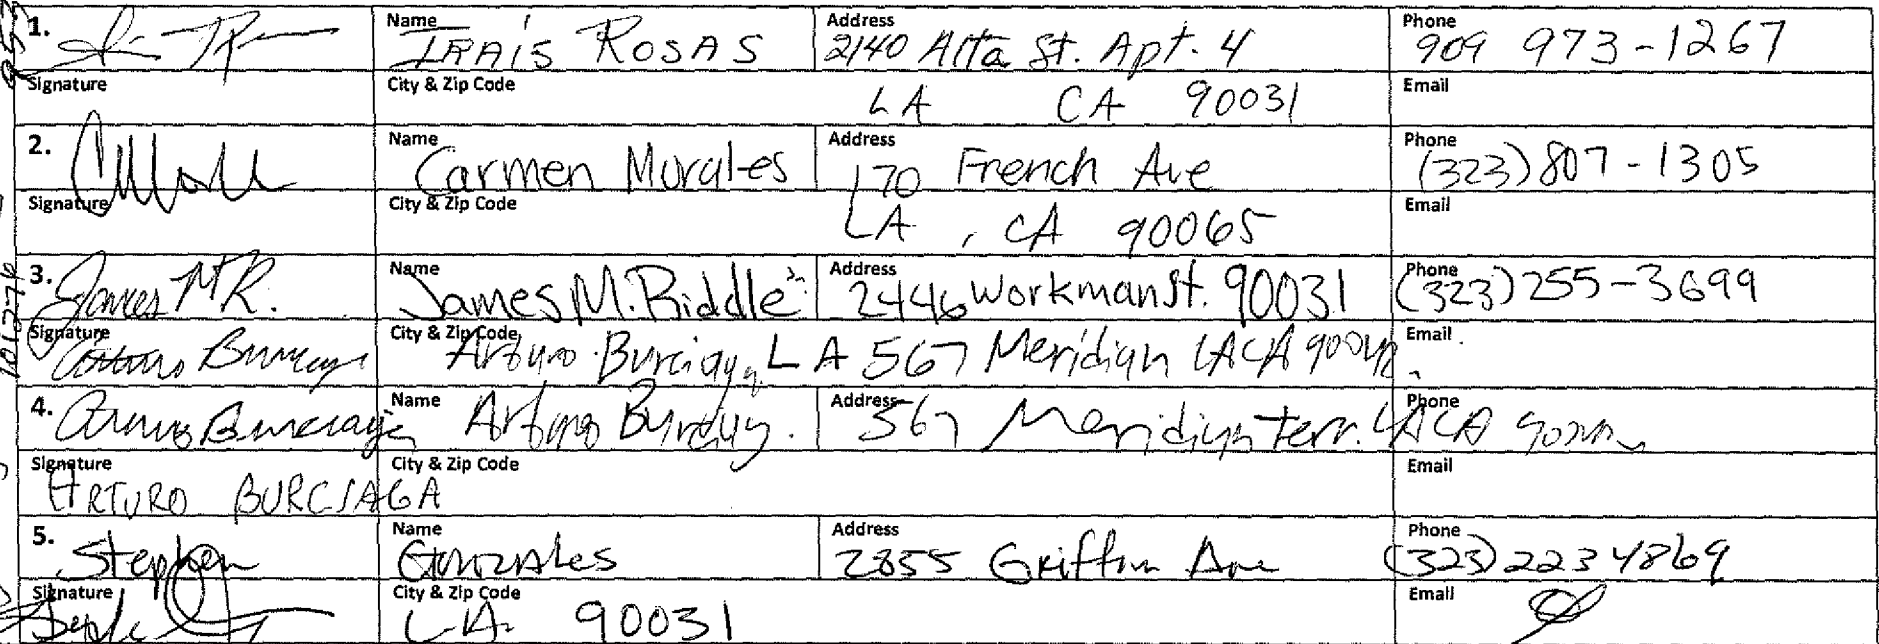 1. Name IRAIS ROSAS Address 2140 Alta St. Apt. 4 Phone 909 973-1267
Signature City & Zip Code LA CA 90031 Email
2. Name Carmen Morales Address 170 French Ave Phone (323) 807-1305
Signature City & Zip Code LA, CA 90065 Email
3. James M R. Name James M. Riddle Address 2446 Workman St. 90031 Phone (323) 255-3699
Signature City & Zip Code Arturo Burciaga LA 567 Meridian LA CA Email
4. Name Arturo Address 567 Meridian terr. LA CA Phone
Signature ARTURO BURCIAGA City & Zip Code Email
5. Stephen Name Gonzales Address 2855 Griffin Ave Phone (323) 223 4869
Signature City & Zip Code LA. 90031 Email